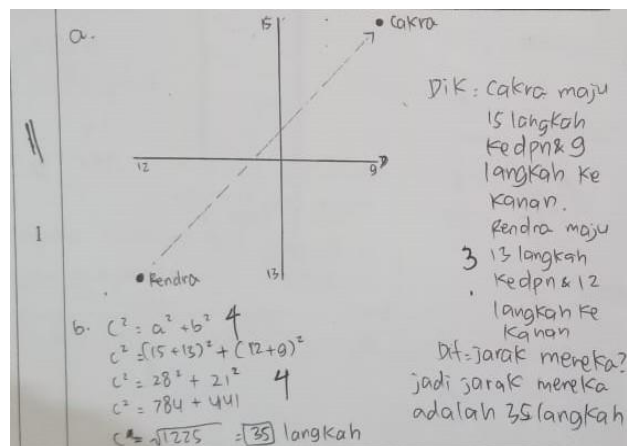 1
a.
15
Cakra
12
9
Rendra
13
Dik: Cakra maju
15 langkah
kedpn & 9
langkah ke
kanan.
Rendra maju
3 13 langkah
kedpn & 12
langkah ke
kanan
Dit = jarak mereka?
jadi jarak mereka
adalah 35 langkah
b. c² = a² + b² 4
c² = (15+13)² + (12+9)²
c² = 28² + 21² 4
c² = 784 + 441
c = √1225 = 35 langkah